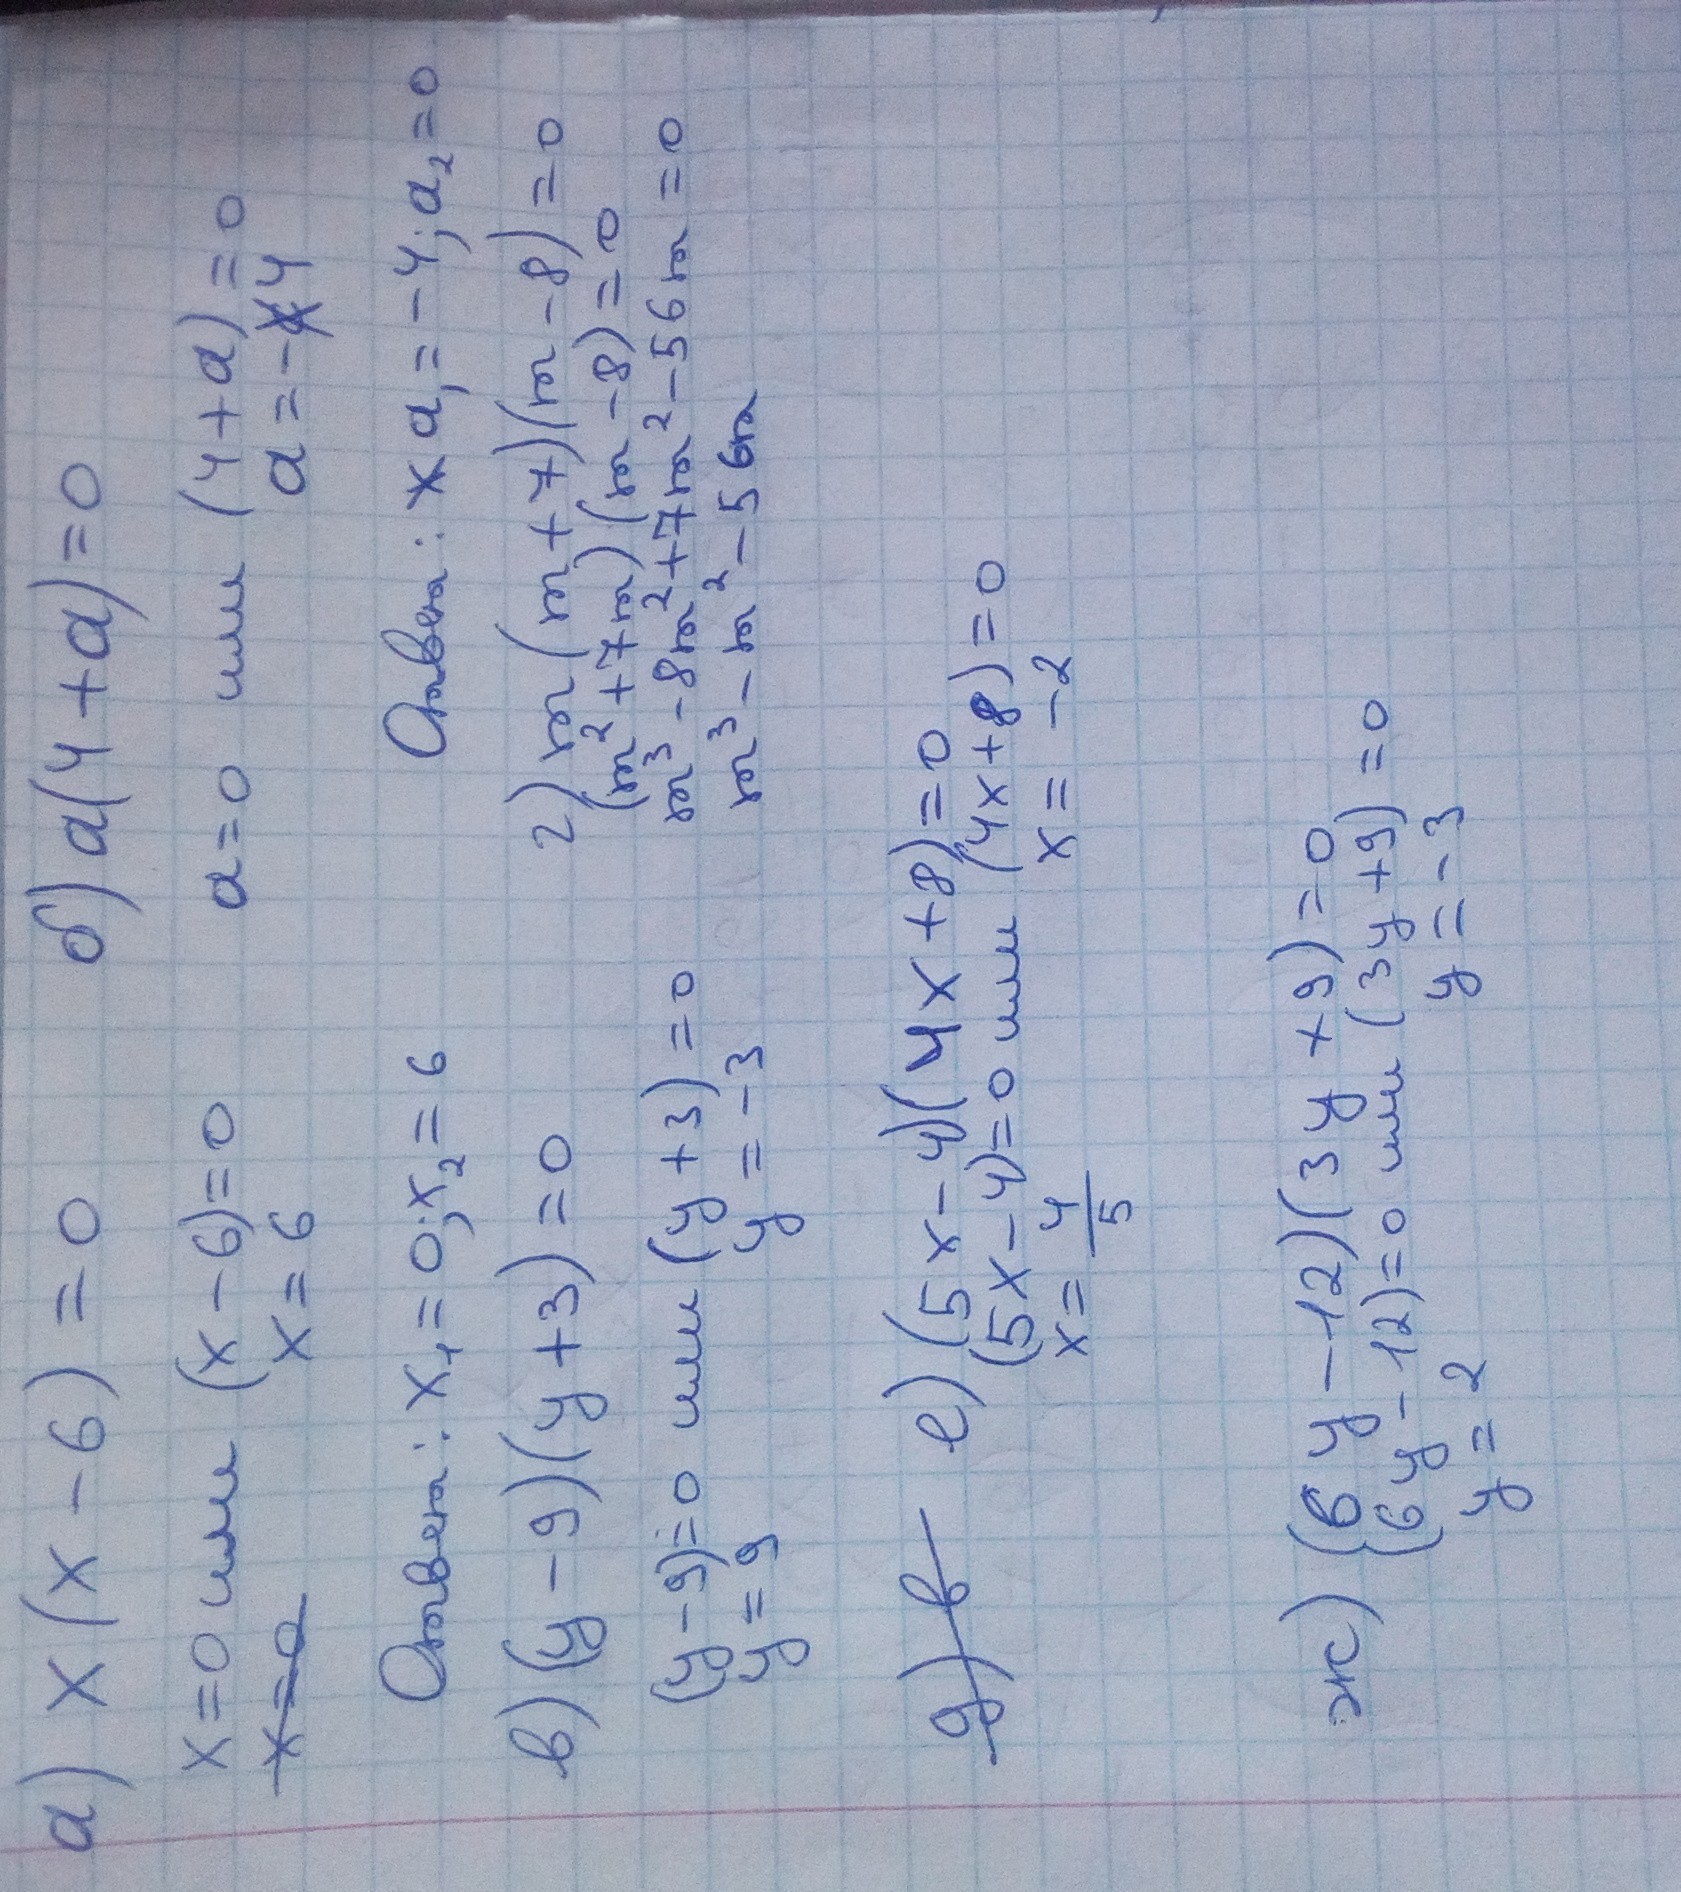 а) x(x-6)=0
x=0 или (x-6)=0
x=0
x=6
Ответ: x₁=0; x₂=6
б) a(4+a)=0
a=0 или (4+a)=0
a=-4
Ответ: x a₁=-4; a₂=0
в) (y-9)(y+3)=0
(y-9)=0 или (y+3)=0
y=9
y=-3
г) m(m+7)(m-8)=0
(m²+7m)(m-8)=0
m³-8m²+7m²-56m=0
m³-m²-56m
д) в
е) (5x-4)(4x+8)=0
(5x-4)=0 или (4x+8)=0
x=4/5
x=-2
ж) (6y-12)(3y+9)=0
(6y-12)=0 или (3y+9)=0
y=2
y=-3